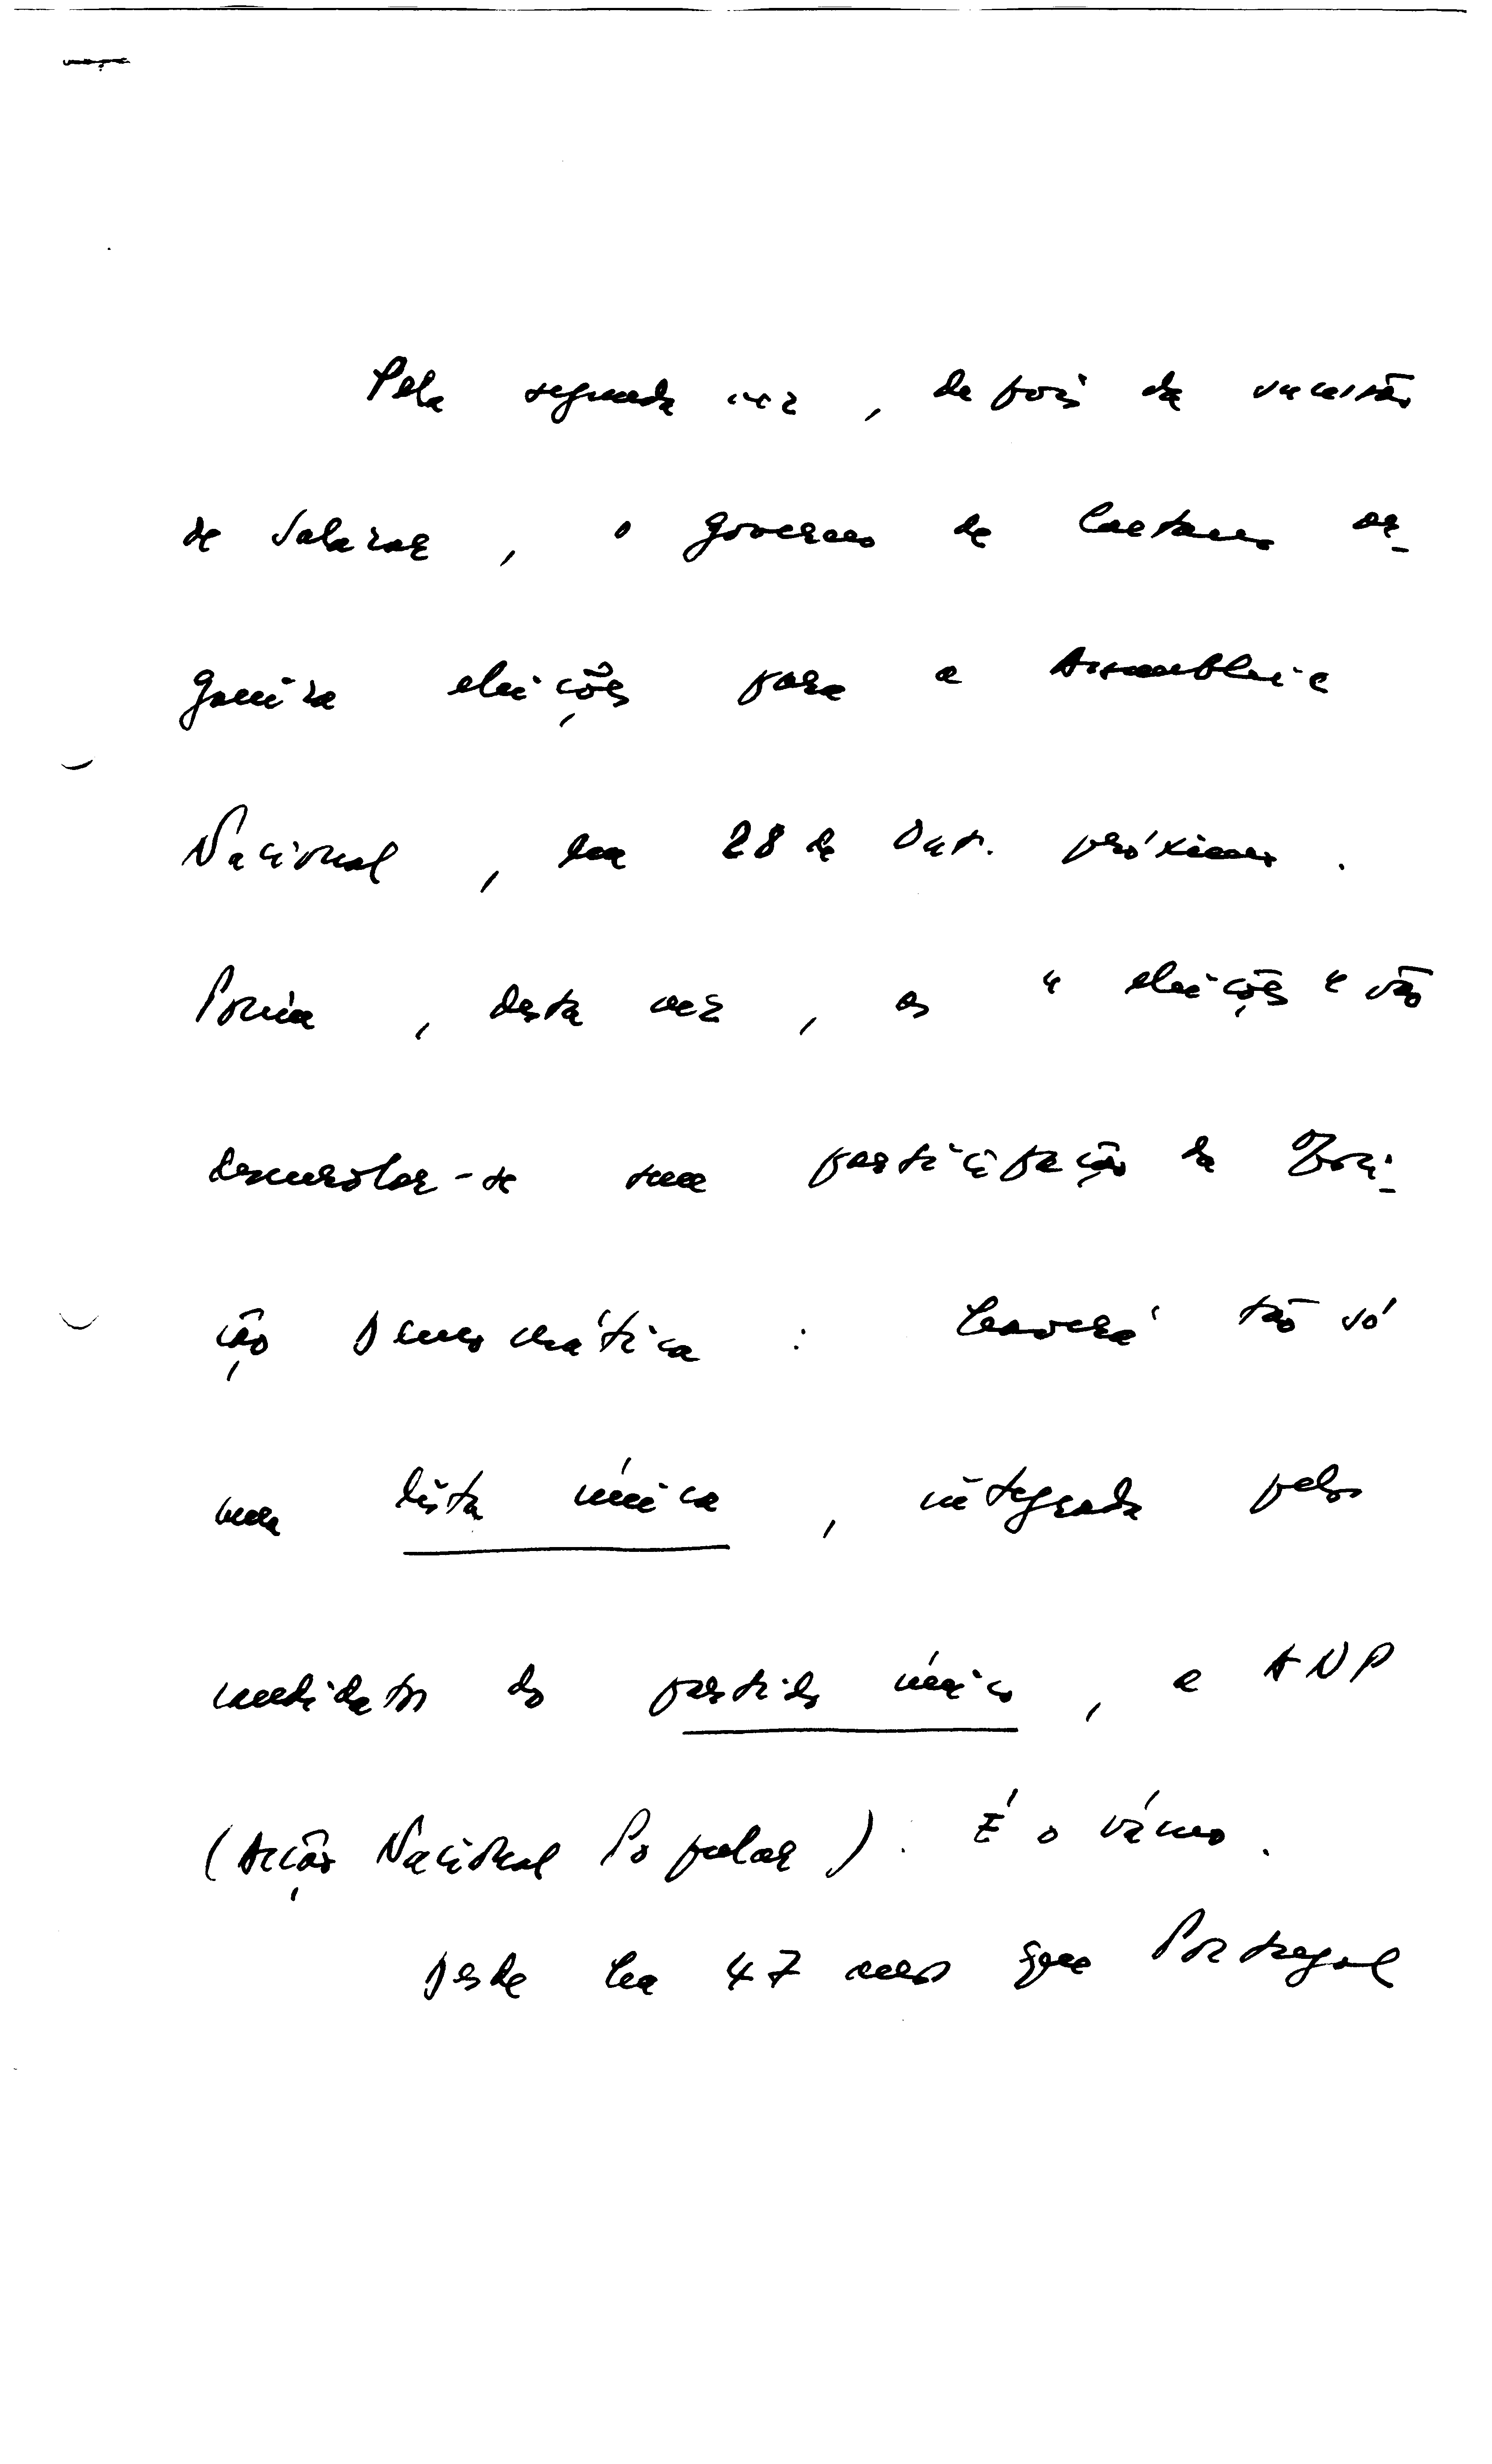 Pela segunda vez, depois da sucessão
de Salazar, o governo de Caetano or-
ganiza eleições para a Assembleia
Nacional, em 28 de Out. próximo.
Porém, desta vez, as "eleições" vão
desenrolar-se sem participação da Opozi-
ção Democrática: haverá tão só
uma lista única, integrada pelos
candidatos do partido único, a ANP
(Acção Nacional Popular). É o vácuo.
Desde há 47 anos que Portugal